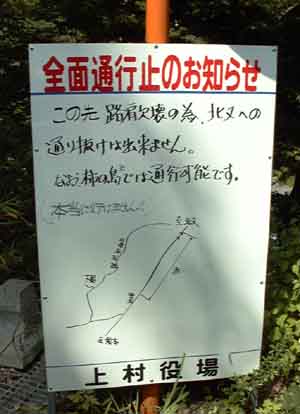 全面通行止のお知らせ
この先 路肩欠壊の為、北又への
通り抜けは出来ません。
なお、柿の島では通行可能です。
本当に行けません!
上村役場